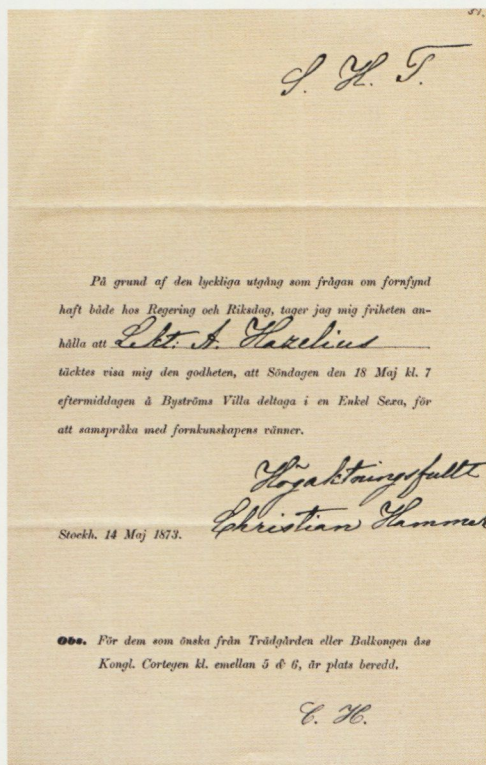 51.
S. H. T.
På grund af den lyckliga utgång som frågan om fornfynd
haft både hos Regering och Riksdag, tager jag mig friheten an-
hålla att Lekt. A. Hazelius
täcktes visa mig den godheten, att Söndagen den 18 Maj kl. 7
eftermiddagen å Byströms Villa deltaga i en Enkel Sexa, för
att samspråka med fornkunskapens vänner.
Högaktningsfullt
Christian Hammer
Stockh. 14 Maj 1873.
Obs. För dem som önska från Trädgården eller Balkongen åse
Kongl. Cortegen kl. emellan 5 & 6, är plats beredd.
C. H.